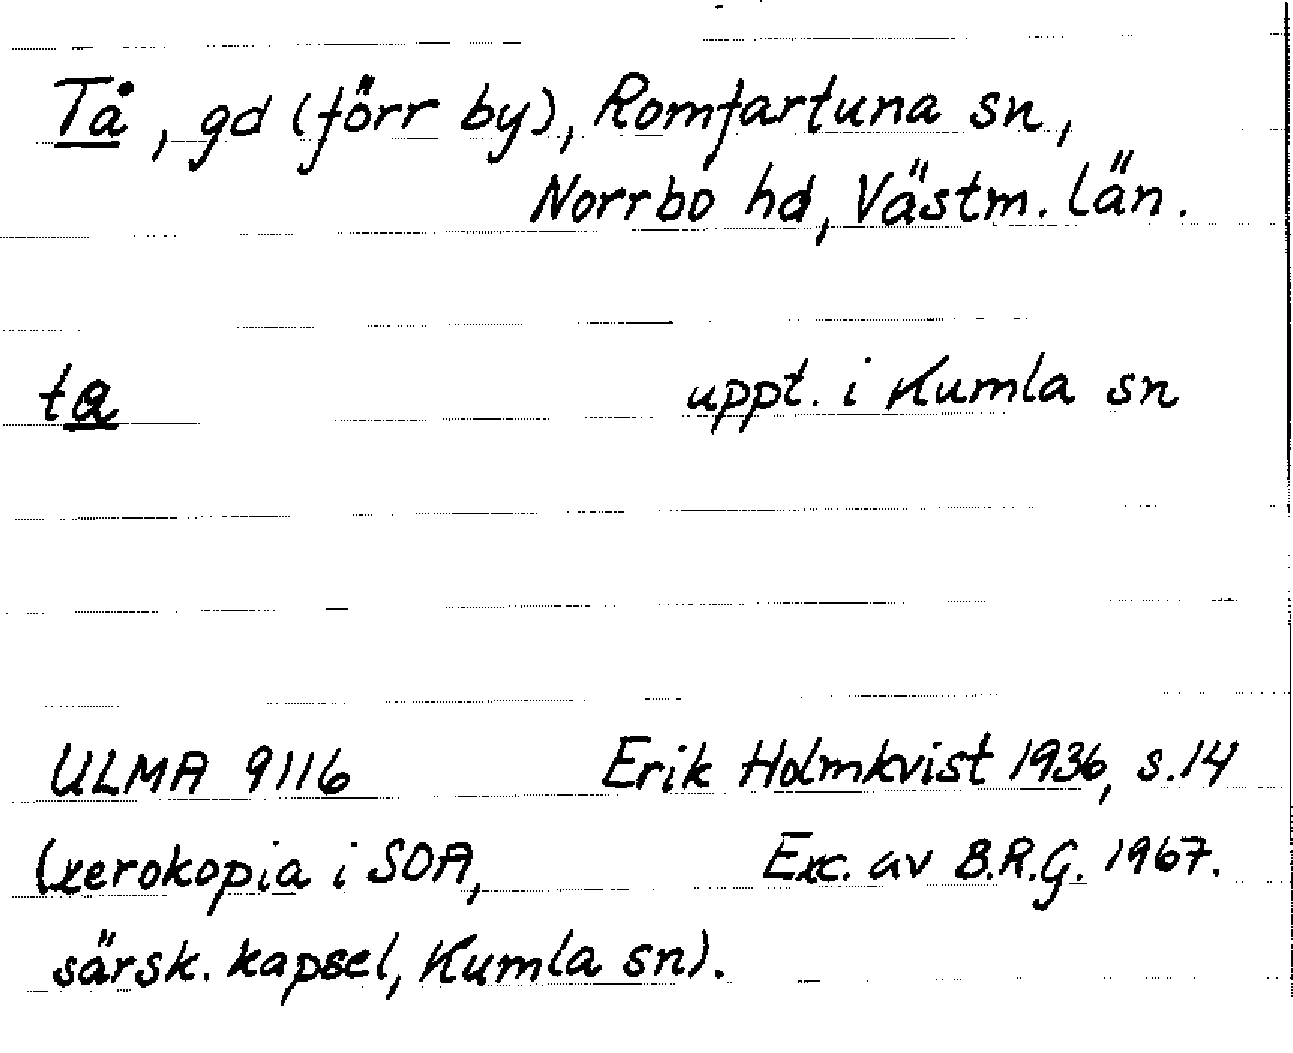 Tå, gd (förr by), Romfartuna sn,
Norrbo hd, Västm. län.
ta uppt. i Kumla sn
ULMA 9116 Erik Holmkvist 1936, s. 14
(xerokopia i SOA, Exc. av B.R.G. 1967.
särsk. kapsel, Kumla sn).